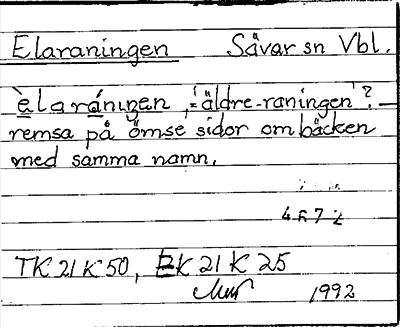 Elaraningen Sävar sn Vbl.
èlaráninen, = 'äldre-raningen'? –
remsa på ömse sidor om bäcken
med samma namn.
4672
TK 21 K 50, EK 21 K 25
1992